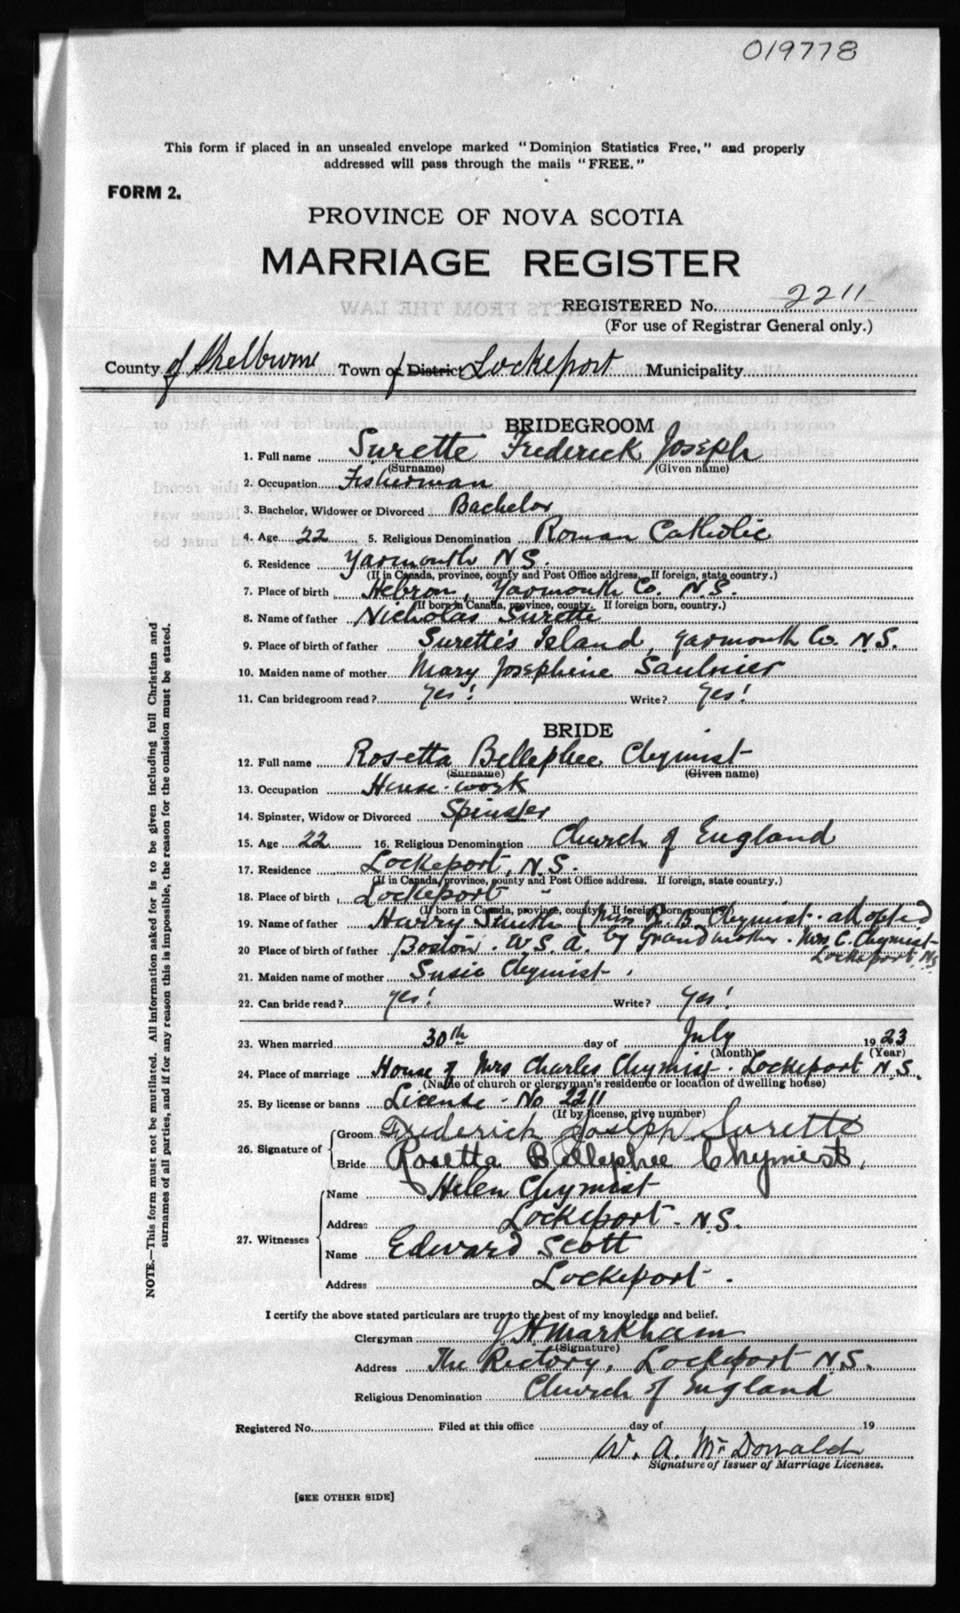 019778
This form if placed in an unsealed envelope marked "Dominion Statistics Free," and properly
addressed will pass through the mails "FREE."
FORM 2.
PROVINCE OF NOVA SCOTIA
MARRIAGE REGISTER
REGISTERED No. 2211
(For use of Registrar General only.)
County of Shelburne Town of District Lockeport Municipality
BRIDEGROOM
1. Full name Surette Frederick Joseph
(Surname) (Given name)
2. Occupation Fisherman
3. Bachelor, Widower or Divorced Bachelor
4. Age 22 5. Religious Denomination Roman Catholic
6. Residence Yarmouth N.S.
(If in Canada, province, county and Post Office address. If foreign, state country.)
7. Place of birth Hebron, Yarmouth Co. N.S.
(If born in Canada, province, county. If foreign born, country.)
8. Name of father Nicholas Surette
9. Place of birth of father Surette's Island, Yarmouth Co. N.S.
10. Maiden name of mother Mary Josephine Saulnier
11. Can bridegroom read? Yes! Write? Yes!
BRIDE
12. Full name Rosetta Bellephee Chymist
(Surname) (Given name)
13. Occupation House-work
14. Spinster, Widow or Divorced Spinster
15. Age 22 16. Religious Denomination Church of England
17. Residence Lockeport, N.S.
(If in Canada, province, county and Post Office address. If foreign, state country.)
18. Place of birth Lockeport
(If born in Canada, province, county. If foreign born, country.)
19. Name of father Harry Smith (Miss R. B. Chymist. adopted
20 Place of birth of father Boston. U.S.A. by Grandmother. Mrs C. Chymist
Lockeport, NS
21. Maiden name of mother Susie Chymist.
22. Can bride read? Yes! Write? Yes!
23. When married 30th day of July 1923
(Month) (Year)
24. Place of marriage House of Mrs Charles Chymist. Lockeport N.S.
(Name of church or clergyman's residence or location of dwelling house)
25. By license or banns License - No 2211
(If by license, give number)
26. Signature of Groom Frederick Joseph Surette
Bride Rosetta Bellephee Chymist.
27. Witnesses Name Helen Chymist
Address Lockeport. N.S.
Name Edward Scott
Address Lockeport.
I certify the above stated particulars are true to the best of my knowledge and belief.
Clergyman J H Markham
(Signature)
Address The Rectory, Lockeport N.S.
Religious Denomination Church of England
Registered No. Filed at this office day of 19
W. A. McDonald
Signature of Issuer of Marriage Licenses.
[SEE OTHER SIDE]
NOTE.—This form must not be mutilated. All information asked for is to be given including full Christian and
surnames of all parties, and if for any reason this is impossible, the reason for the omission must be stated.